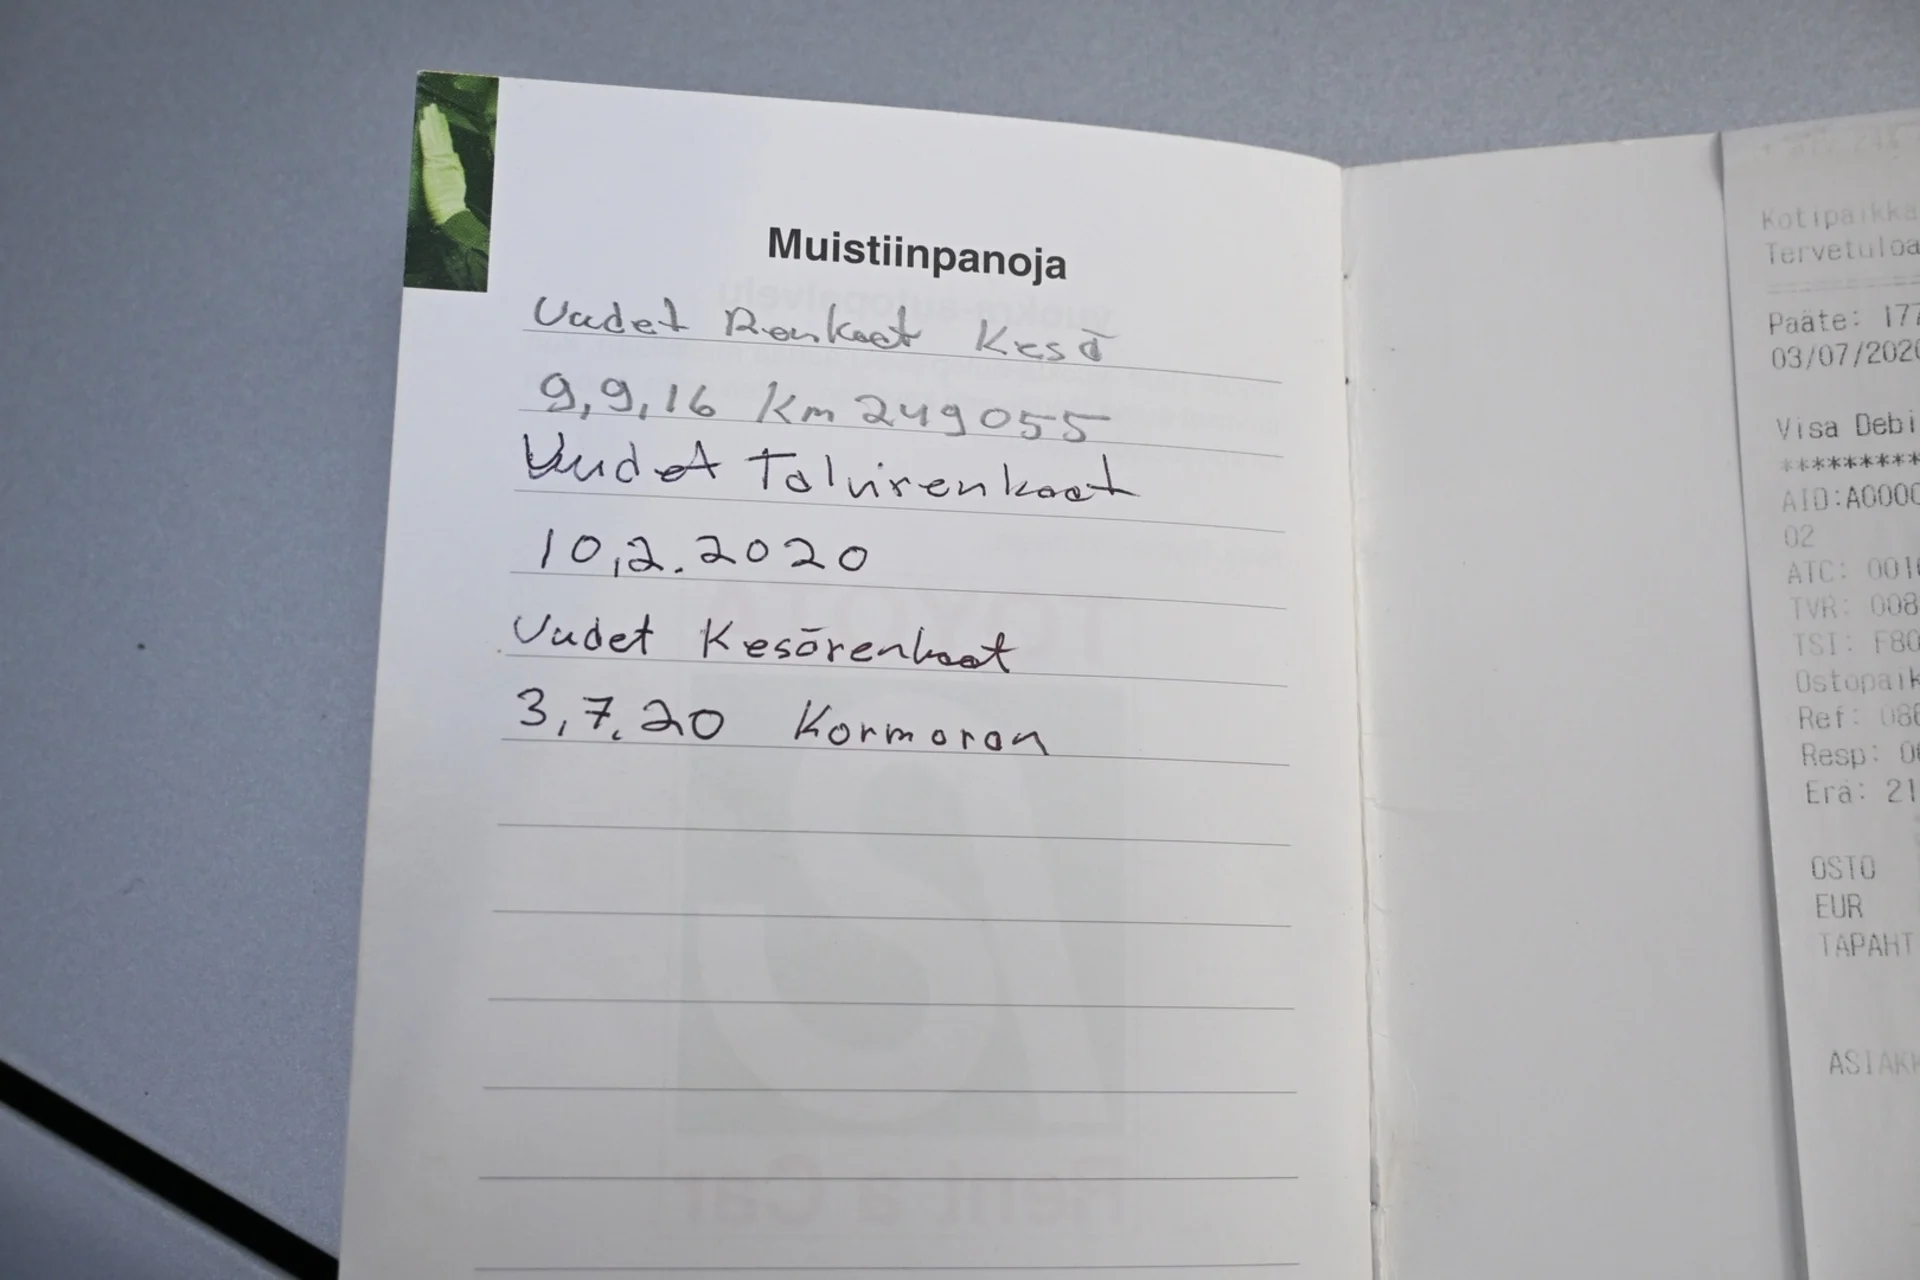 Muistiinpanoja
Uudet Renkaat Kesä
9,9,16 Km 249055
Uudet Talvirenkaat
10,2.2020
Uudet Kesärenkaat
3,7.20 Kormoran
Kotipaikka
Tervetuloa
Pääte: 177
03/07/2020
Visa Debi
*********
AID:A0000
02
ATC: 001
TVR: 008
TSI: F80
Ostopaik
Ref: 08
Resp: 0
Erä: 21
OSTO
EUR
TAPAHT
ASIAKK